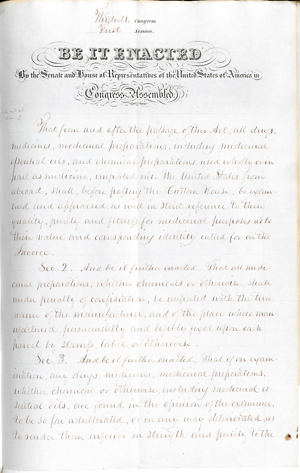 Thirtieth Congress.
First Session.
BE IT ENACTED
By the Senate and House of Representatives of the United States of America in
Congress Assembled,
That from and after the passage of this Act, all drugs,
medicines, medicinal preparations, including medicinal
essential oils, and chemical preparations used wholly or in
part as medicine, imported into the United States from
abroad, shall, before passing the Custom House, be exam-
ined and appraised, as well in reference to their
quality, purity and fitness for medicinal purposes as to
their value and identity
Invoice.
Sec. 2. And be it further enacted, That all medi-
cinal preparations, whether chemical or otherwise,
imported with the
name of the manufacturer, and of the place where
permanently and legibly upon each
parcel by stamp, label, or otherwise.
Sec. 3. And be it further enacted, That if on exam-
ination, any drugs, medicines, medicinal preparations,
whether chemical or otherwise, including medicinal es-
sential oils, are found in the opinion of the examiner,
to be so far adulterated, or in any way deteriorated as
to render them inferior in strength and purity to the